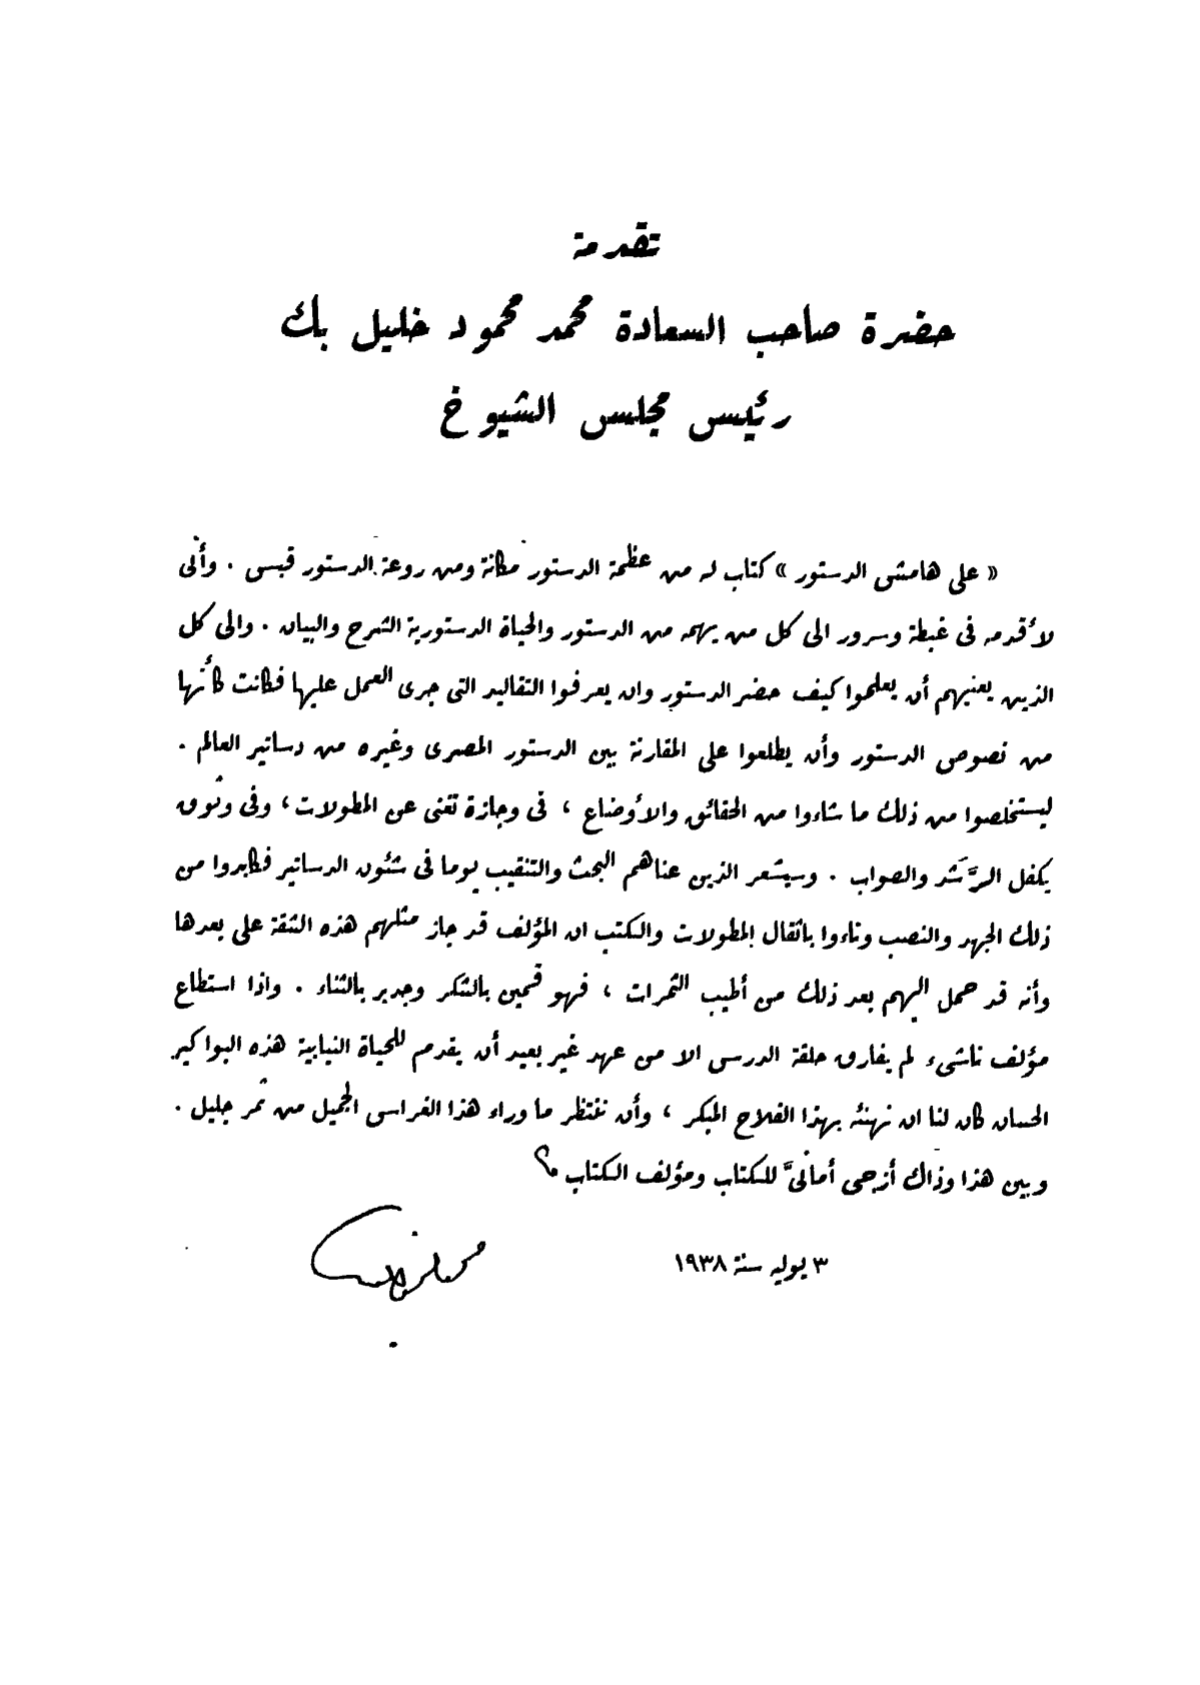 تقدمة
حضرة صاحب السعادة محمد محمود خليل بك
رئيس مجلس الشيوخ
« على هامش الدستور » كتاب له من عظمة الدستور مكانة ومن روعة الدستور قبس . وأنى
لأقدمه فى غبطة وسرور الى كل من يهمه من الدستور والحياة الدستورية الشرح والبيان . والى كل
الذين يعنيهم أن يعلموا كيف حضر الدستور وان يعرفوا التقاليد التى جرى العمل عليها فكانت كأنها
من نصوص الدستور وأن يطلعوا على المقارنة بين الدستور المصرى وغيره من دساتير العالم .
ليستخلصوا من ذلك ما شاءوا من الحقائق والأوضاع ، فى وجازة تغنى عن المطولات ، وفى وثوق
يكفل الرَّشَد والصواب . وسيشعر الذين عناهم البحث والتنقيب يوما فى شئون الدساتير فكابدوا من
ذلك الجهد والنصب وناءوا باثقال المطولات والكتب ان المؤلف قد جاز مثلهم هذه الشقة على بعدها
وأنه قد حمل اليهم بعد ذلك من أطيب الثمرات ، فهو قمين بالشكر وجدير بالثناء . واذا استطاع
مؤلف ناشىء لم يفارق حلقة الدرس الا من عهد غير بعيد أن يقدم للحياة النيابية هذه البواكير
الحسان كان لنا ان نهنئه بهذا الفلاح المبكر ، وأن ننتظر ما وراء هذا الغراس الجميل من ثمر جليل .
وبين هذا وذاك أزجى أمانىَّ للكتاب ومؤلف الكتاب
٣ يوليه سنة ١٩٣٨